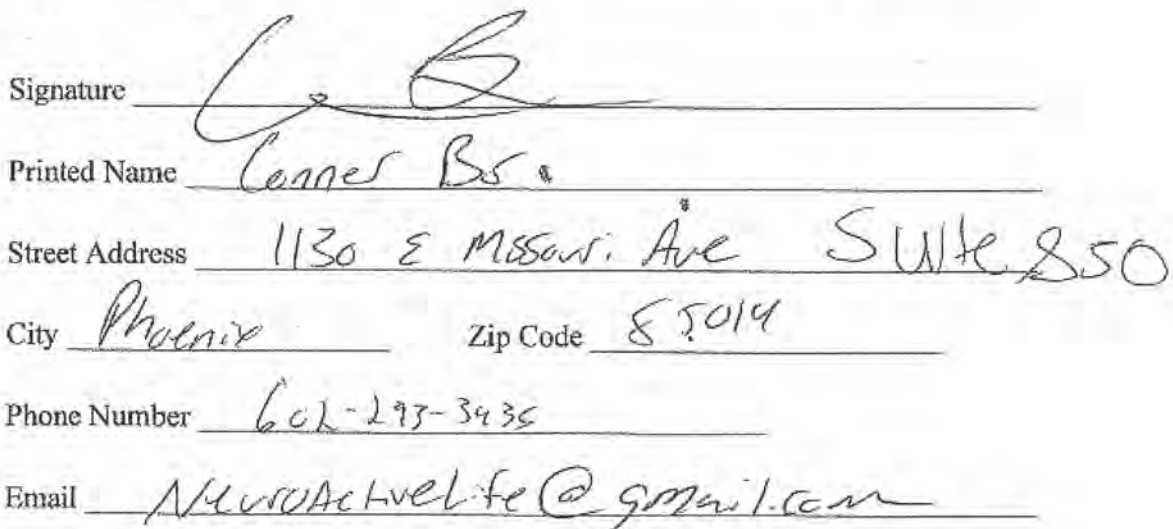 Signature
Printed Name Conner
Street Address 1130 E Missouri Ave Suite 850
City Phoenix Zip Code 85014
Phone Number 602-293-3435
Email NeuroActiveLife@gmail.com